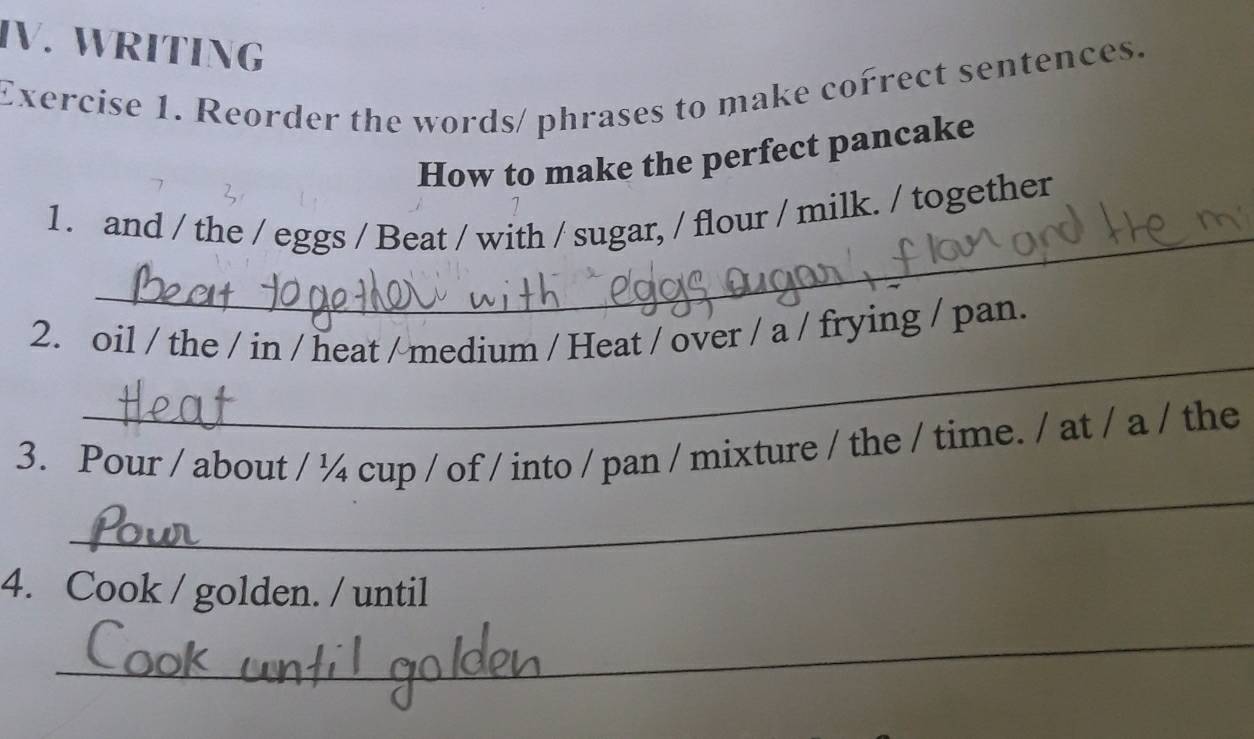 IV. WRITING
Exercise 1. Reorder the words/ phrases to make correct sentences.
How to make the perfect pancake
1. and / the / eggs / Beat / with / sugar, / flour / milk. / together
Beat together with eggs sugar, flour and the
2. oil / the / in / heat / medium / Heat / over / a / frying / pan.
Heat
3. Pour / about / ¼ cup / of / into / pan / mixture / the / time. / at / a / the
Pour
4. Cook / golden. / until
Cook until golden